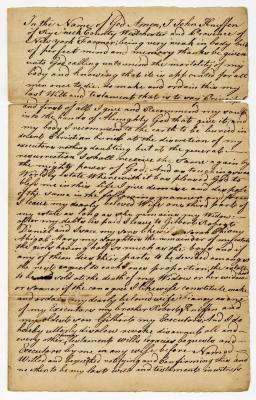 In the Name of God Amen, I John
of Rye in County Westchester and Province of
New York Farmer being very weak in body but
of perfect mind and memory thanks be given
unto God calling unto mind the mortality of my
body and knowing that it is appointed for all
men once to die do make and ordain this my
last Will and testament that is to say Principally
and first of all I give and Recommend my soul
into the hands of Almighty God that gave it and
my body I recommend to the earth to be buried in
decent Christian burial at the discretion of my
executors nothing doubting but at the general
resurrection I shall receive the same again by
the mighty power of God. And as touching such
Worldly estate Wherewith it has pleased God to
bless me in this Life I give demise and dispose of
the same in the following manner and form
leave my dearly beloved Wife one third part of
my estate as long as she remains my Widow
after my debts is paid I leave to Gilbert
Daniel and Isaac my sons likewise Sarah
Abigail Mary my daughters the remainder of my estate
the girls having half as much as the boys and
any of them dies their parts to be divided amongst
the rest equal to each ones proportion, the
to be sold at the death of my Widow or
I likewise constitute make
and ordain my dearly beloved wife
of my Executors my brother Robert
my son Gilbert my Executors and I do
hereby utterly disallow revoke disannul all and
every other testaments Wills legacies bequests and
Executors by me in any wise before Named
Willed and bequeathed ratifying and confirming this and
no other to be my last will and testament in witness